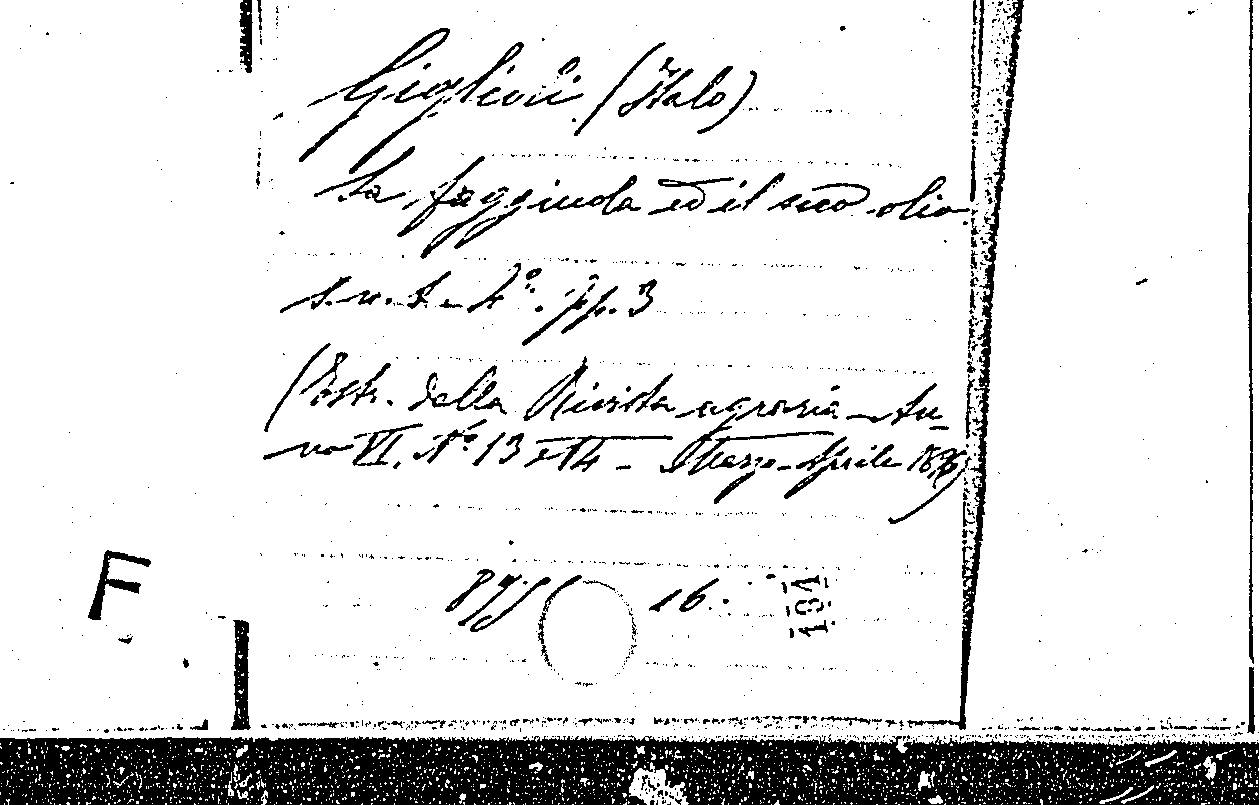 Giglioli (Italo)
La faggiuola ed il suo olio
s. n. t. - 4°. pp. 3
(Estr. della Rivista agraria - An-
no VI. N° 13 e 14 - Marzo-Aprile 1896)
16.
191
F